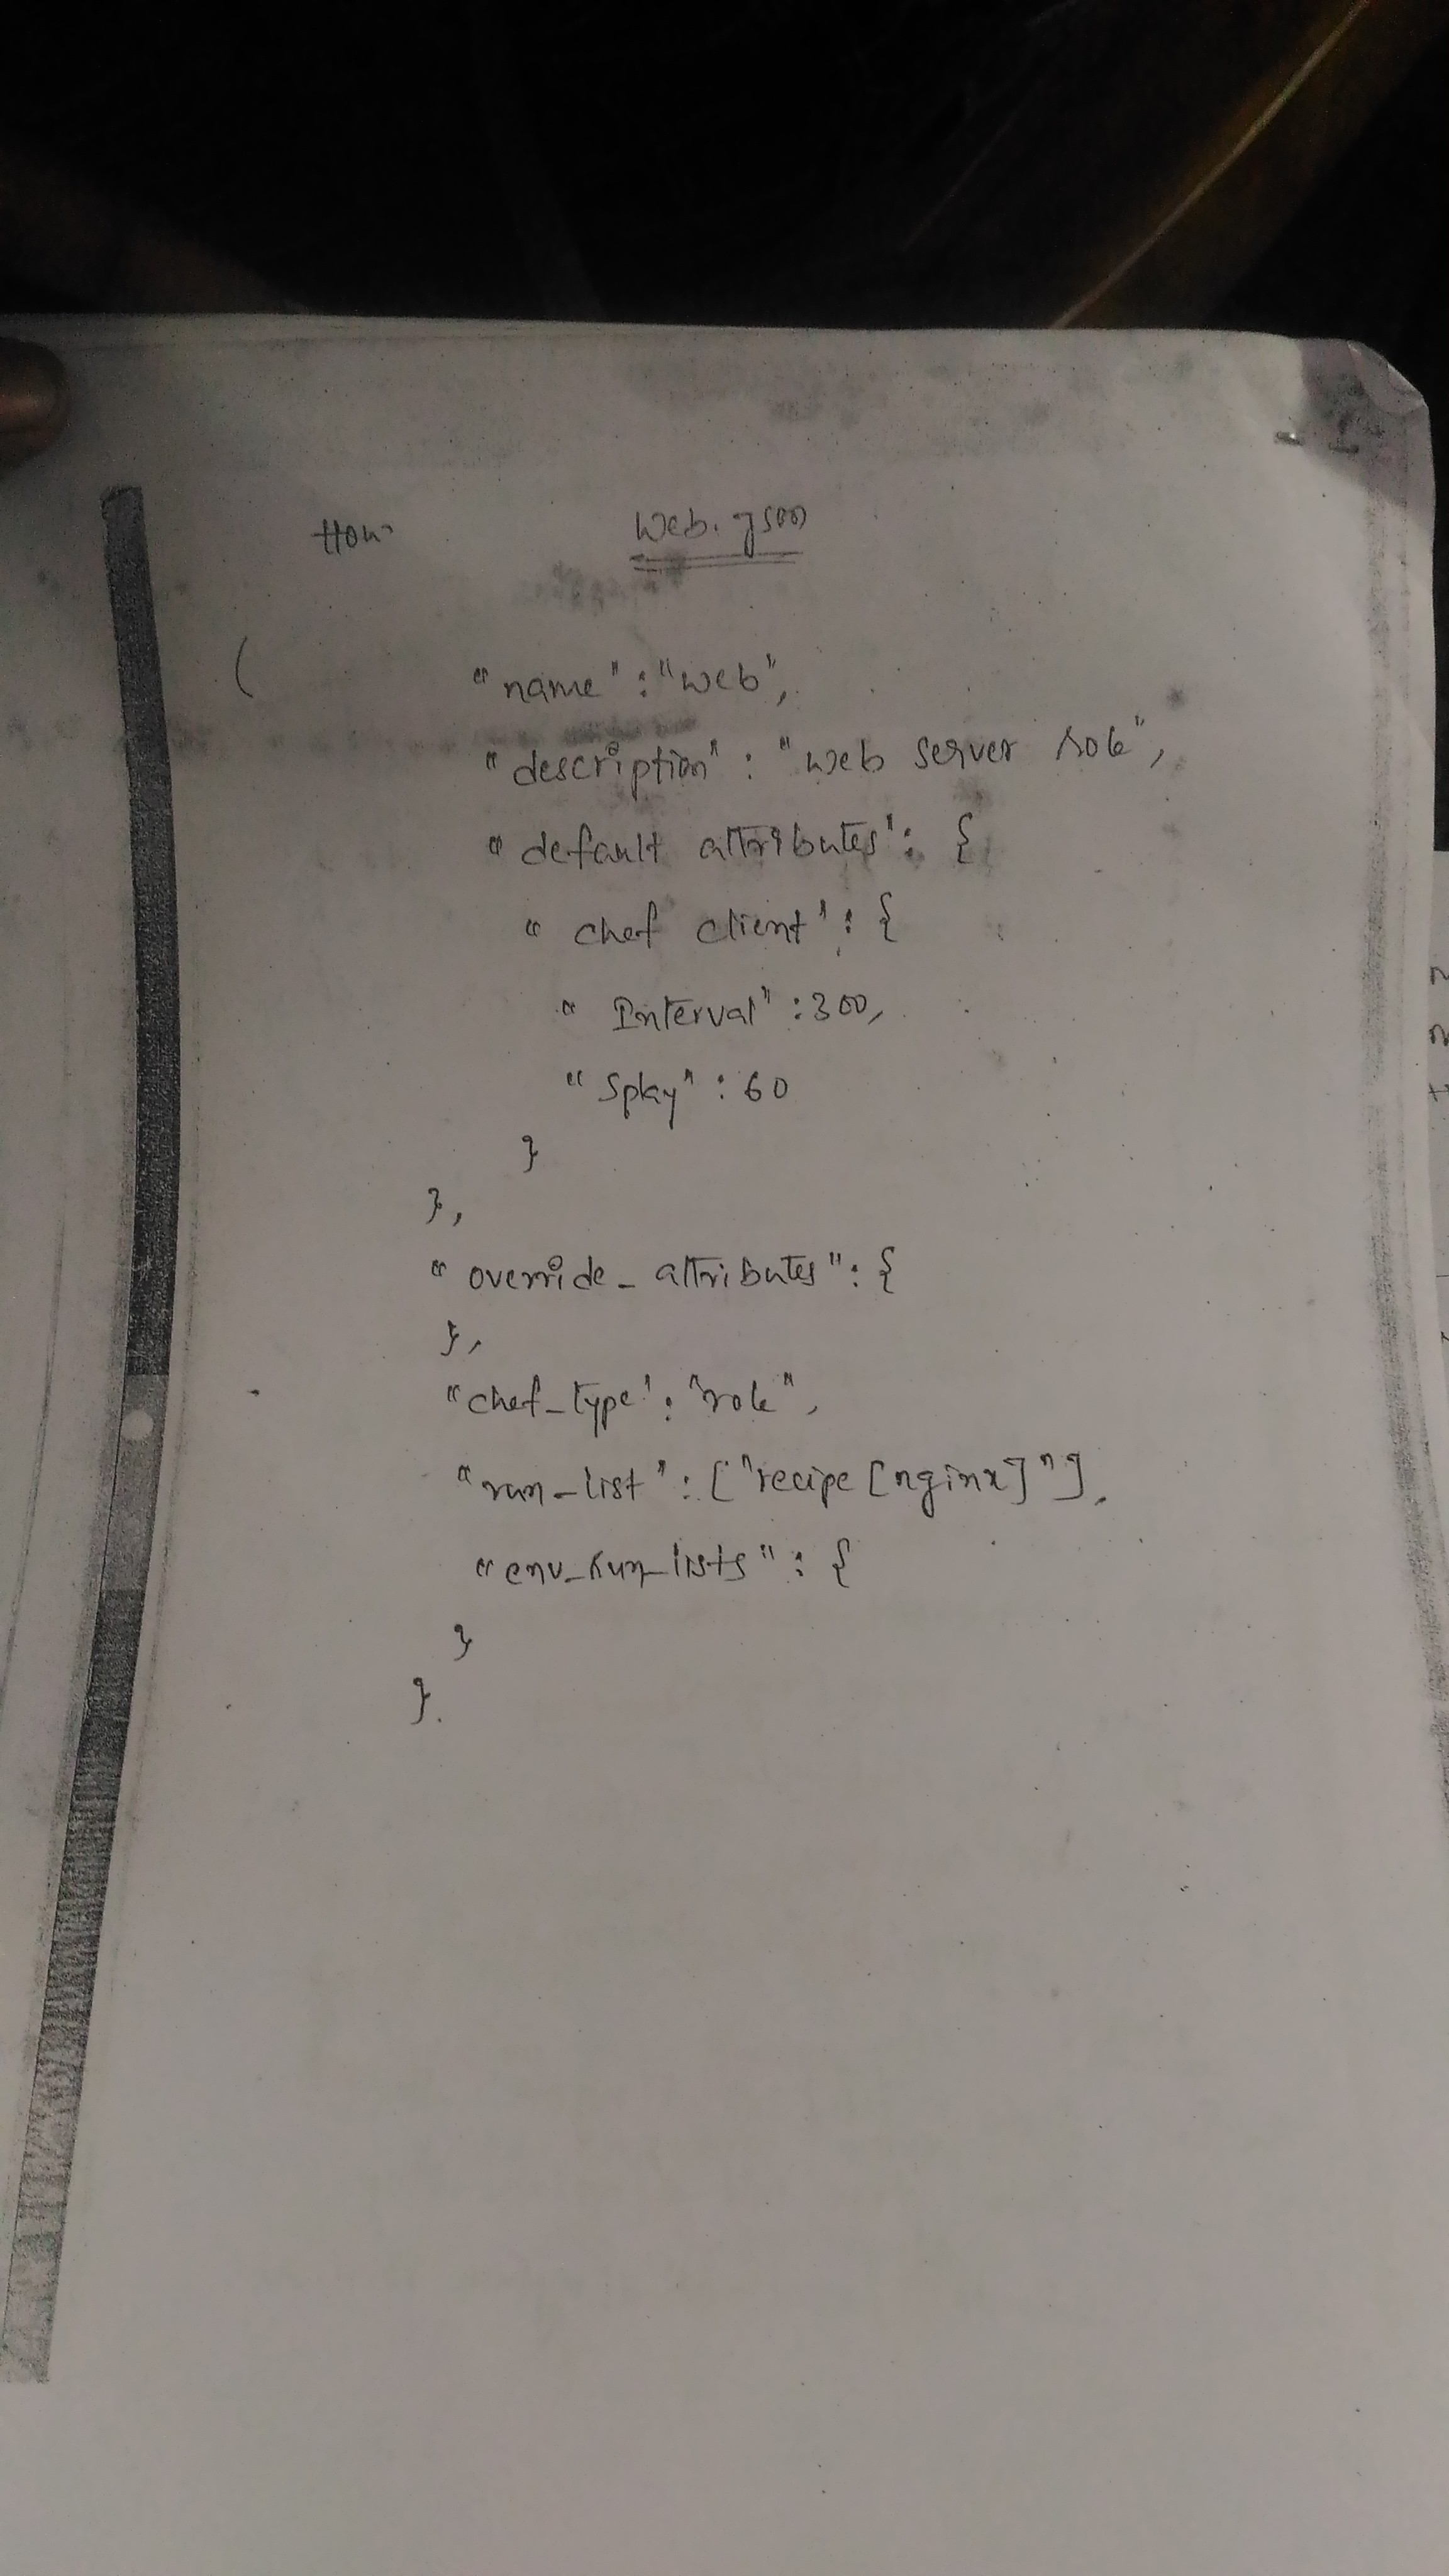 Web. json
(
"name" : "web",
"description" : "web server role",
"default attributes" : {
"chef client" : {
"Interval" : 300,
"Splay" : 60
}
},
"override_attributes" : {
},
"chef_type" : "role",
"run_list" : ["recipe [nginx]"].
"env_run_lists" : {
}
}.